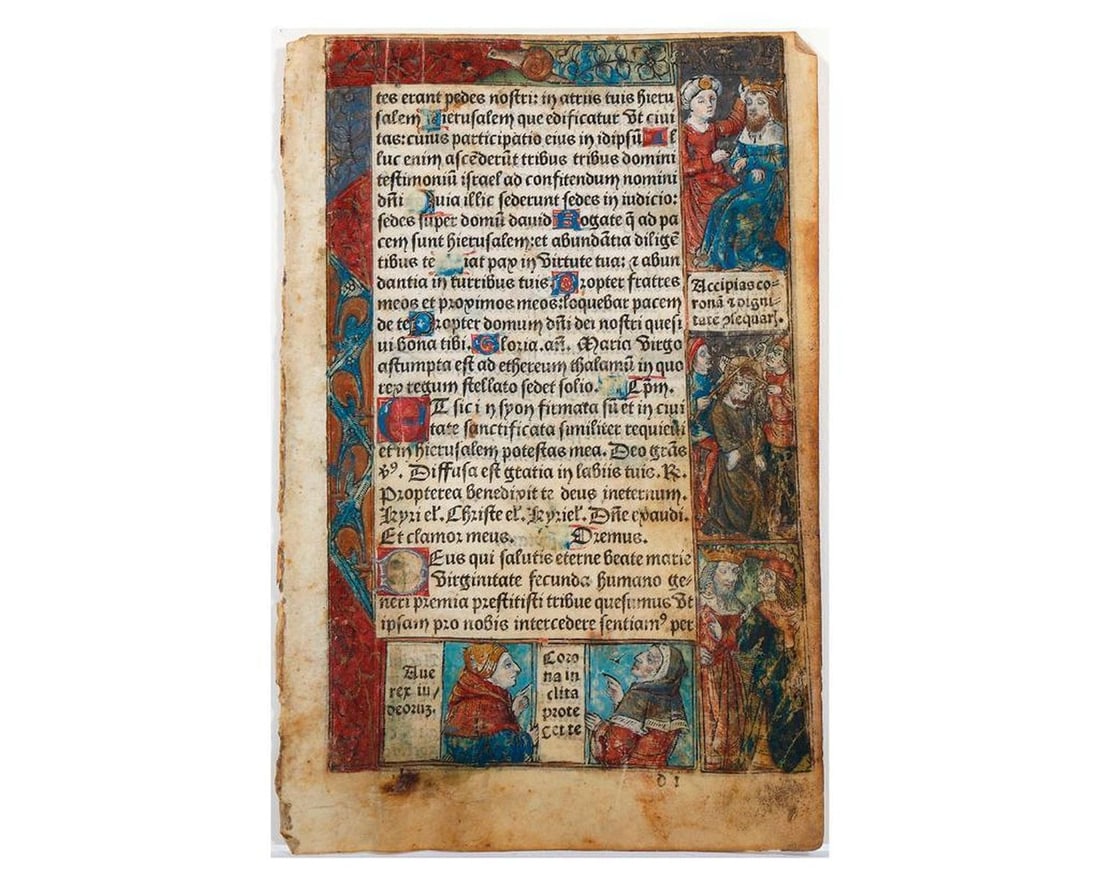 tes erant pedes nostri: in atriis tuis hieru
salem Hierusalem que edificatur Vt ciui
tas: cuius participatio eius in idipsū Il
luc enim ascēderūt tribus tribus domini
testimoniū israel ad confitendum nomini
dñi Quia illic sederunt sedes in iudicio:
sedes super domū dauid Rogate q̄ ad pa
cem sunt hierusalem: et abundātia diligē
tibus te iat pax in Virtute tua: ⁊ abun
dantia in turribus tuis Propter fratres
meos et proximos meos: loquebar pacem
de te Propter domum dñi dei nostri quesi
ui bona tibi. Gloria. añ. Maria Virgo
assumpta est ad ethereum thalamū in quo
rex regum stellato sedet solio. Cpm.
ET sic in syon firmata sū et in ciui
tate sanctificata similiter requieui
et in hierusalem potestas mea. Deo grās
v⁹. Diffusa est gratia in labiis tuis. R.
Propterea benedixit te deus ineternum.
Kyri el. Christe el. Kyriel. Dñe exaudi.
Et clamor meus. Oremus.
DEus qui salutis eterne beate marie
Virginitate fecunda humano ge-
neri premia prestitisti tribue quesumus Vt
ipsam pro nobis intercedere sentiam⁹ per
Accipias co-
ronā ⁊ digni-
tatē
Aue
rex iu/
deorum.
Coro
na in
clita
prote
get te
d 1